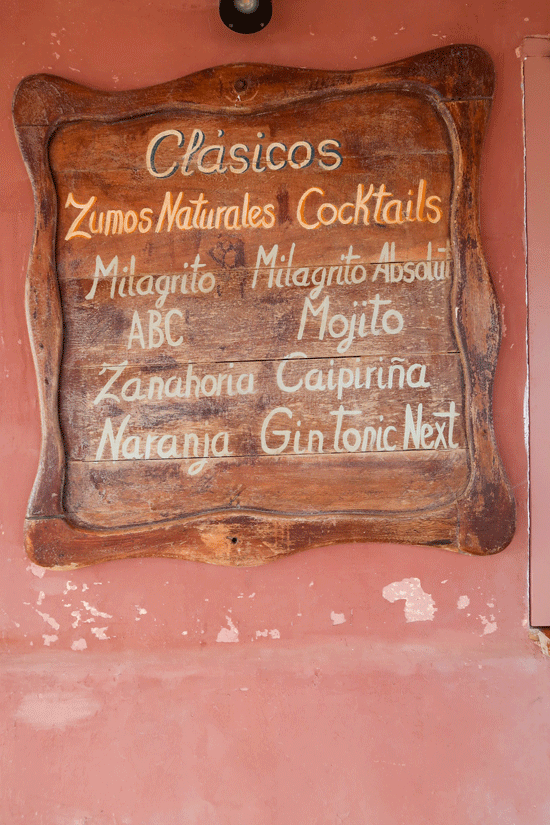 Clásicos
Zumos Naturales Cocktails
Milagrito Milagrito Absolut
ABC Mojito
Zanahoria Caipiriña
Naranja Gin Tonic Next